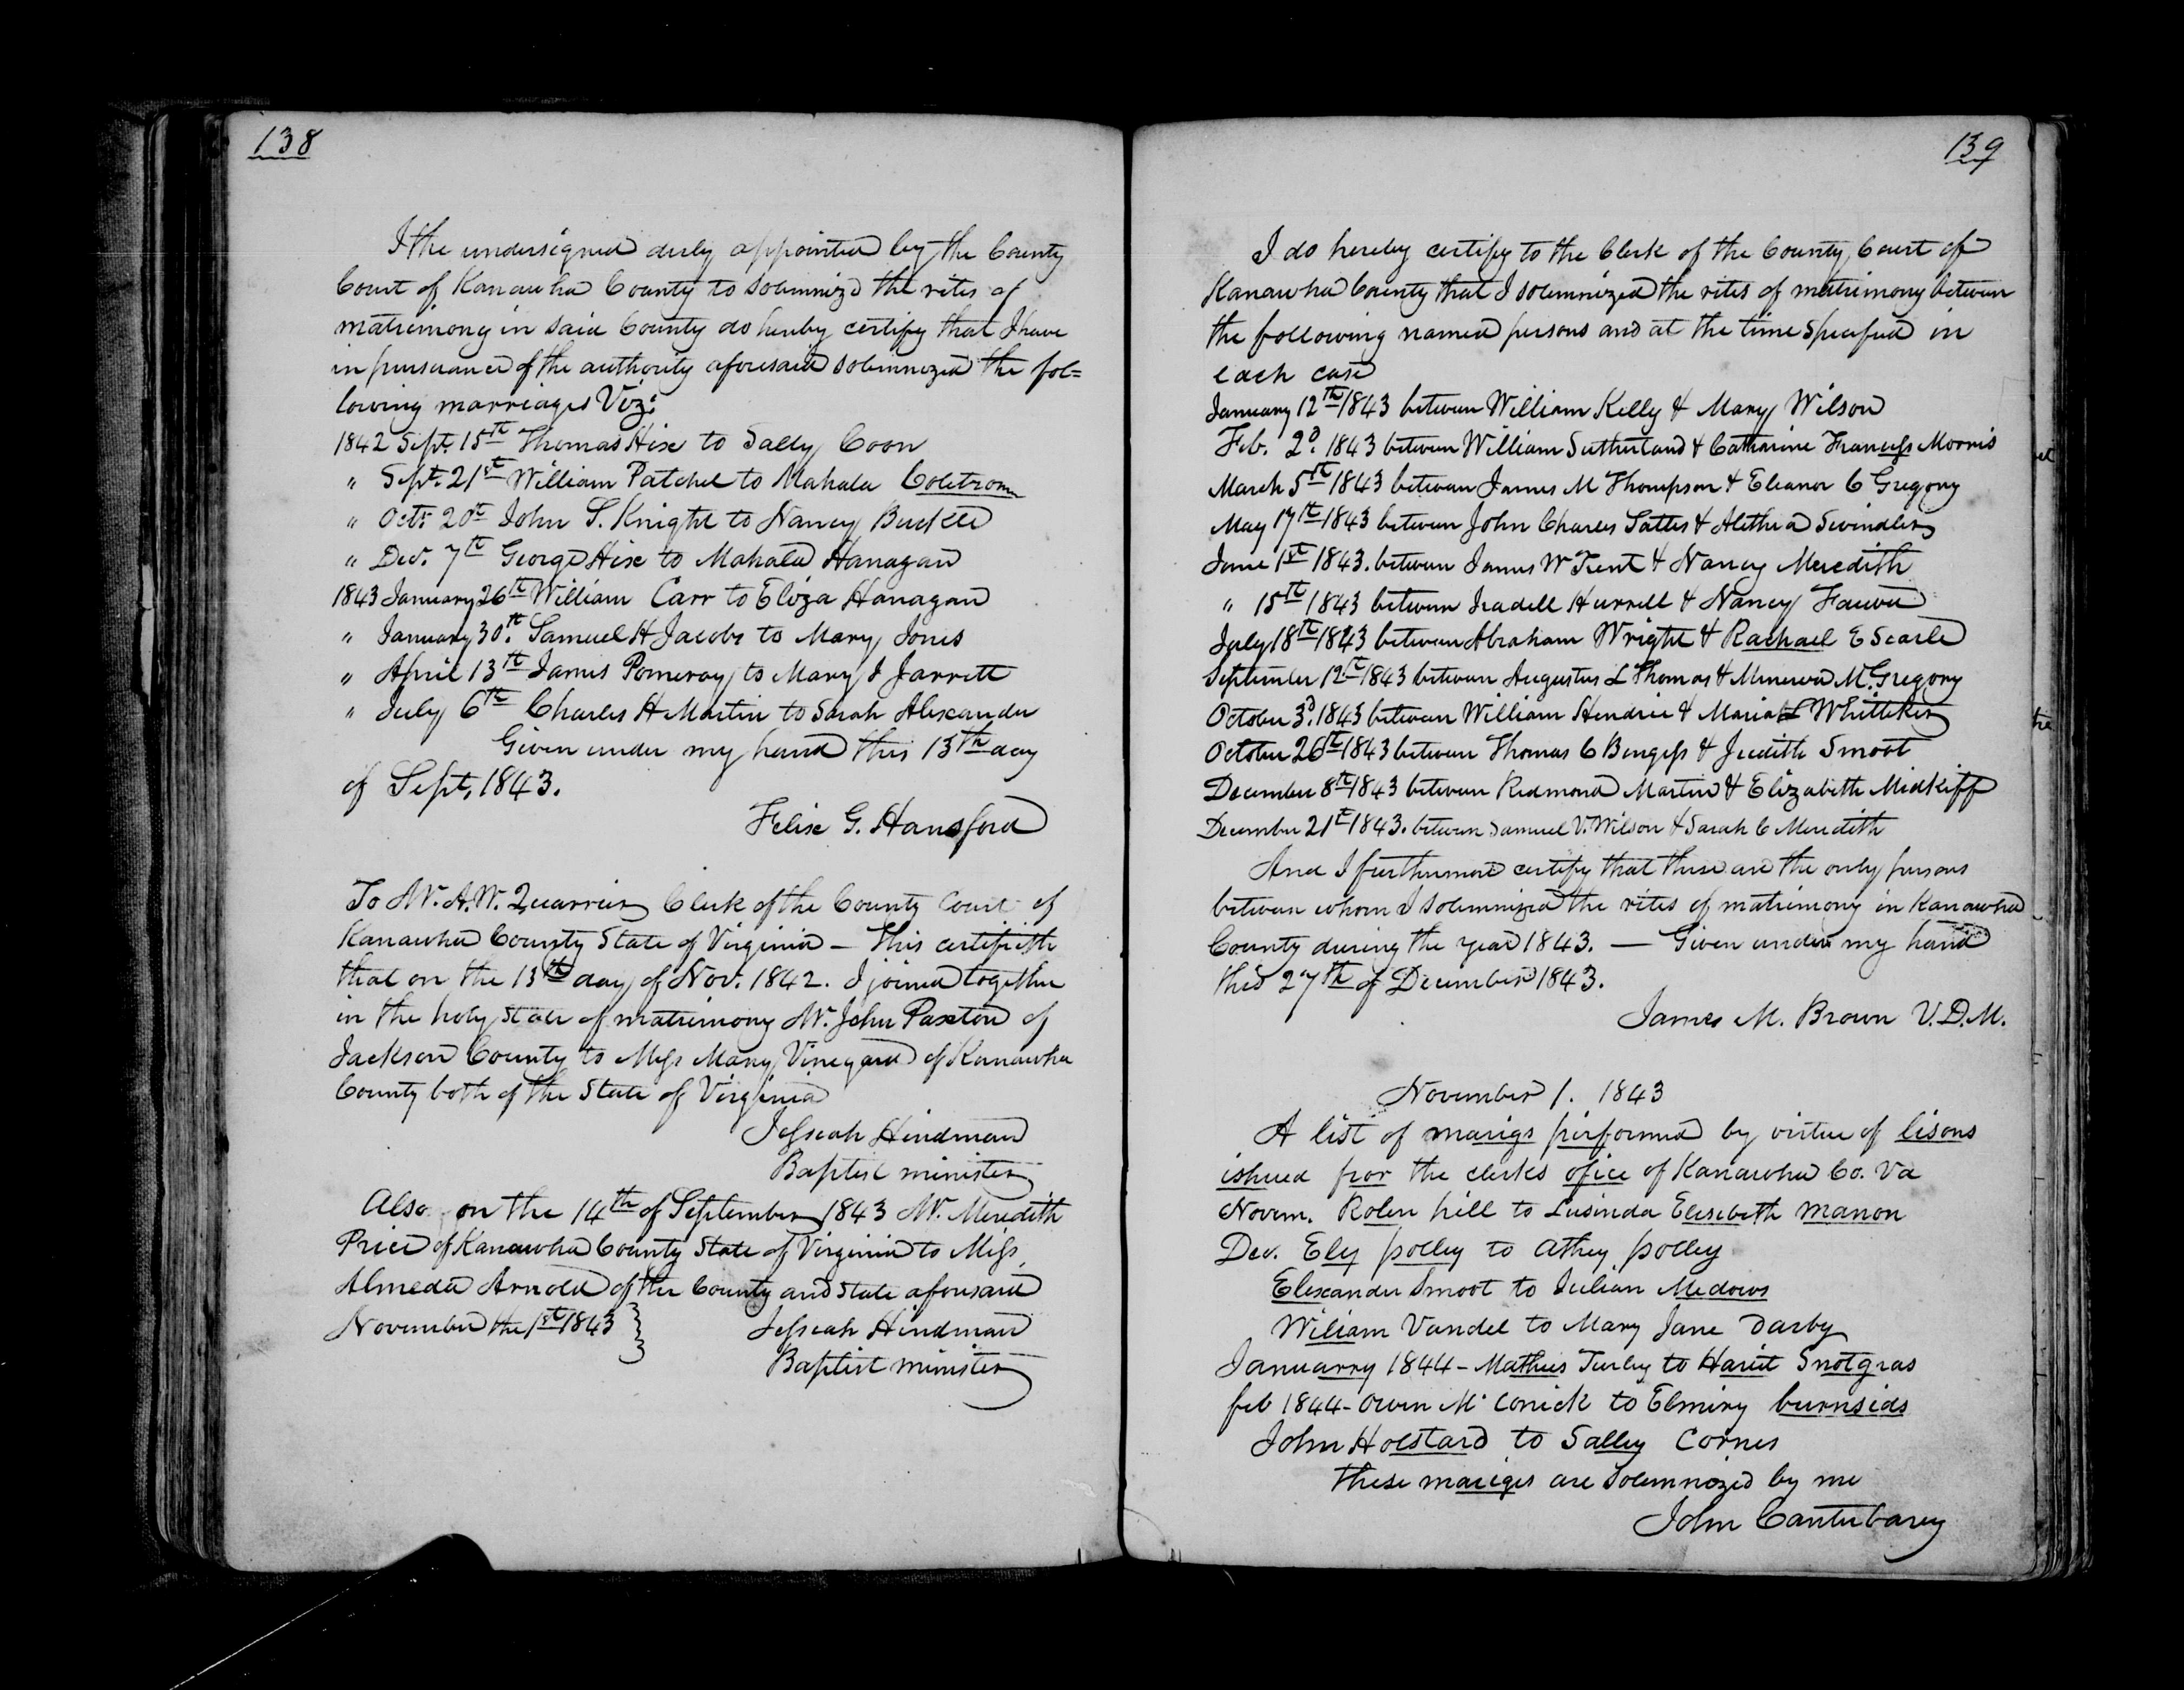 138
I the undersigned duly appointed by the County
Court of Kanawha County to solemnize the rites of
matrimony in said County do hereby certify that I have
in pursuance of the authority aforesaid solemnized the fol=
lowing marriages Viz:
1842 Sept. 15th Thomas Hix to Sally Coon
" Sept. 21st William Patchel to Mahala
" Octr. 20th John S. Knight to Nancy Buckle
" Dec. 7th George Hix to Mahala Hanagan
1843 January 26th William Carr to Eliza Hanagan
" January 30th. Samuel H Jacobs to Mary Jones
" April 13th James Pomeroy to Mary J Jarrett
" July 6th Charles H Martin to Sarah Alexander
Given under my hand this 13th day
of Sept. 1843.
Felix G. Hansford
To Mr. A. W. Quarrier Clerk of the County Court of
Kanawha County State of Virginia — This certifieth
that on the 13th day of Nov. 1842. I joined together
in the holy state of matrimony Mr. John Paxton of
Jackson County to Miss Mary Vineyard of Kanawha
County both of the State of Virginia
Hindman
Baptist minister
Also on the 14th of September 1843 Mr. Meredith
Price of Kanawha County State of Virginia to Miss
Almeda Arnold of the County and State aforesaid
November the 1st 1843 Hindman
Baptist minister
139
I do hereby certify to the Clerk of the County Court of
Kanawha County that I solemnized the rites of matrimony between
the following named persons and at the time specified in
each case
January 12th 1843 between William Kelly & Mary Wilson
Feb. 2d. 1843 between William Sutherland & Catharine Morris
March 5th 1843 between James M Thompson & Eleanor C Gregory
May 17th 1843 between John Charles & Alethea Swindler
June 1st 1843. between James W Trent & Nancy Meredith
" 15th 1843 between Iradell Hurrell & Nancy
July 18th 1843 between Abraham Wright & Rachael E Searle
September 12th 1843 between Augustus L Thomas & Minerva M. Gregory
October 3d. 1843 between William Hendric & Maria L Whitteker
October 26th 1843 between Thomas C Burgess & Judith Smoot
December 8th 1843 between Redmond Martin & Elizabeth Midkiff
December 21st 1843. between Samuel V. Wilson & Sarah C Meredith
And I furthermore certify that these are the only persons
between whom I solemnized the rites of matrimony in Kanawha
County during the year 1843. — Given under my hand
this 27th of December 1843.
James M. Brown V.D.M.
November 1. 1843
A list of marigs pirformed by virtue of lisons
ishued fror the clerks ofice of Kanawha Co. Va
Novem. Rolen hill to Lusinda Elesebeth manon
Dec. Ely polley to Athey polley
Elexander Smoot to Julian Medows
Wiliam Vandel to Mary Jane Darby
Januarry 1844 - Mathus Turley to Hariit Snotgras
feb 1844 - Owen Mc Conick to Elmiry burnsids
John Holstard to Salley Cornes
these mariges are solemnozed by me
John Canterbarey